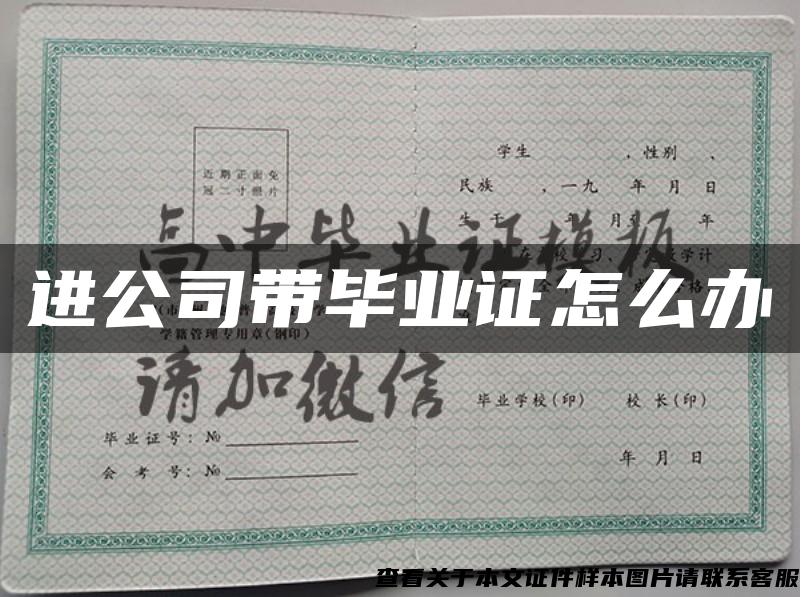 近期正面免
冠二寸照片
学籍管理专用章(钢印)
毕业证号:№
会考号:№
学生 ,性别 、
民族 ,一九 年 月 日
生于 年 月至 年
毕业学校(印) 校长(印)
年 月 日
高中毕业证模板
请加微信
进公司带毕业证怎么办
查看关于本文证件样本图片请联系客服